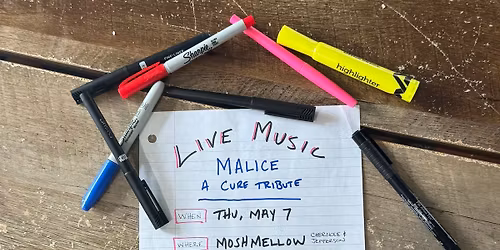 Sharpie
highlighter
LIVE MUSIC
MALICE
A CURE TRIBUTE
WHEN THU, MAY 7
WHERE MOSHMELLOW CHEROKEE &
JEFFERSON